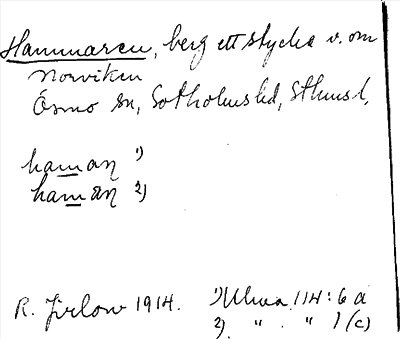 Hammaren, berg ett stycke v. om
Norviken
Ösmo sn, Sotholms hd, Sthms l,
hamaŋ 1)
hamāŋ 2)
R. Jirlow 1914. 1) Ulvaa 114: 6 a
2) " . " 1 (c)